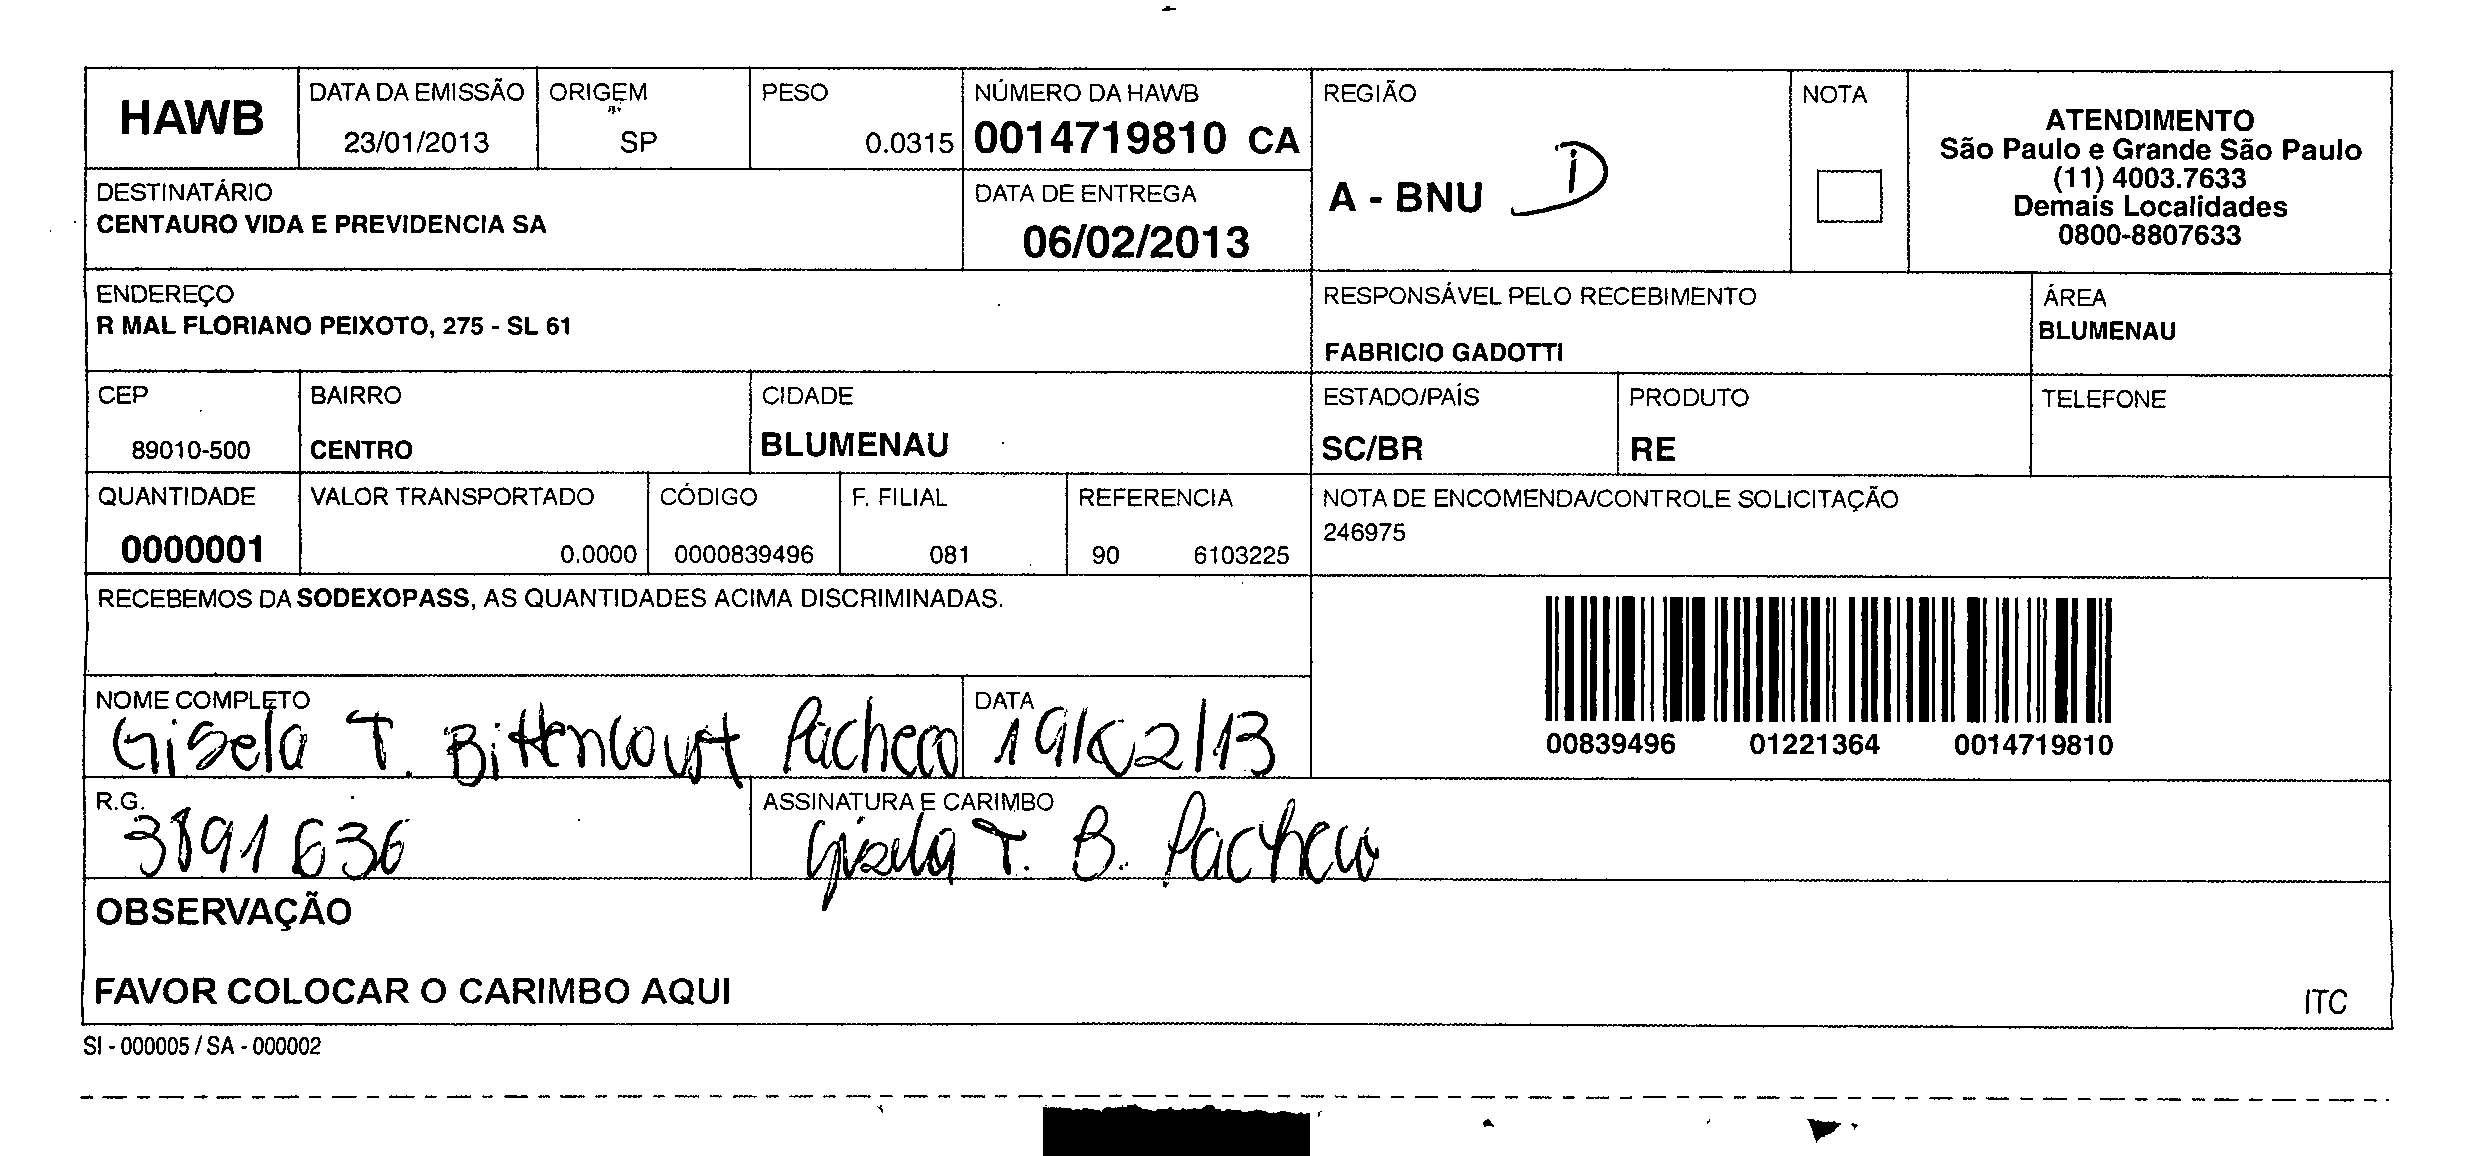 HAWB
DATA DA EMISSÃO
23/01/2013
ORIGEM
SP
PESO
0.0315
NÚMERO DA HAWB
0014719810 CA
REGIÃO
A - BNU D
NOTA
ATENDIMENTO
São Paulo e Grande São Paulo
(11) 4003.7633
Demais Localidades
0800-8807633
DESTINATÁRIO
CENTAURO VIDA E PREVIDENCIA SA
DATA DE ENTREGA
06/02/2013
ENDEREÇO
R MAL FLORIANO PEIXOTO, 275 - SL 61
RESPONSÁVEL PELO RECEBIMENTO
FABRICIO GADOTTI
ÁREA
BLUMENAU
CEP
89010-500
BAIRRO
CENTRO
CIDADE
BLUMENAU
ESTADO/PAÍS
SC/BR
PRODUTO
RE
TELEFONE
QUANTIDADE
0000001
VALOR TRANSPORTADO
0.0000
CÓDIGO
0000839496
F. FILIAL
081
REFERENCIA
90 6103225
NOTA DE ENCOMENDA/CONTROLE SOLICITAÇÃO
246975
RECEBEMOS DA SODEXOPASS, AS QUANTIDADES ACIMA DISCRIMINADAS.
00839496 01221364 0014719810
NOME COMPLETO
Gisela T. Bittencourt Pacheco
DATA
19/02/13
R.G.
3891636
ASSINATURA E CARIMBO
Gisela T. B. Pacheco
OBSERVAÇÃO
FAVOR COLOCAR O CARIMBO AQUI
ITC
SI - 000005 / SA - 000002